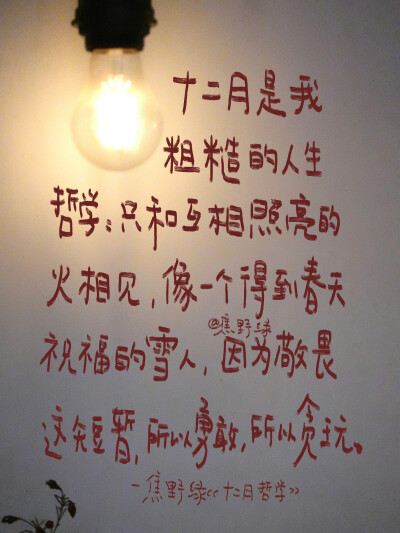 十二月是我
粗糙的人生
哲学:只和互相照亮的
火相见,像一个得到春天
@焦野绿
祝福的雪人,因为敬畏
这短暂,所以勇敢,所以贪玩。
-焦野绿《十二月哲学》